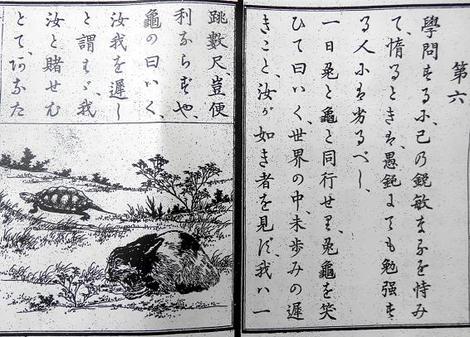 第六
學問するに己の鋭敏なるを恃み
て、惰るときは、愚鈍にても勉强す
る人には劣るべし、
一日兎と龜と同行せり、兎龜を笑
ひて曰いく、世界の中、未歩みの遲
きこと、汝が如き者を見ず、我ハ一
跳數尺、豈便
利ならずや、
龜の曰いく、
汝我を遲し
と謂はゞ、我
汝と賭せむ
とて、あなた